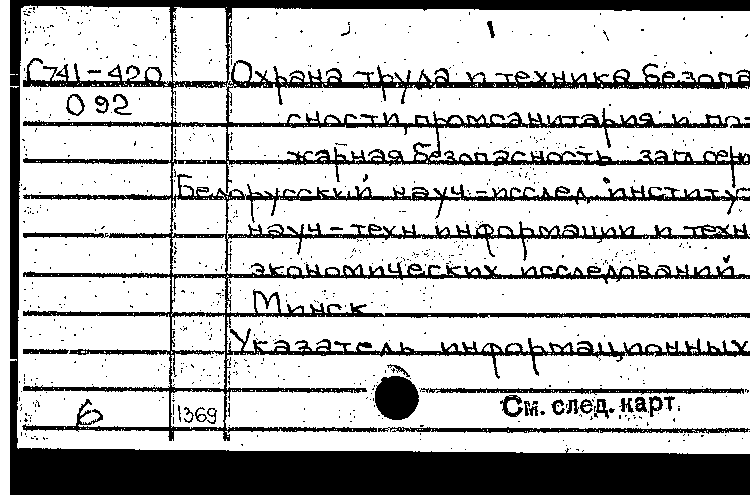 Г741-420 Охрана труда и техника безопа
092
сности, промсанитария и по-
жарная безопасность загл серии
Белорусский науч-исслед. институ
науч-техн информации и техн
экономических исследований.
Минск
Указатель информационных
См. след. карт.
б 1369